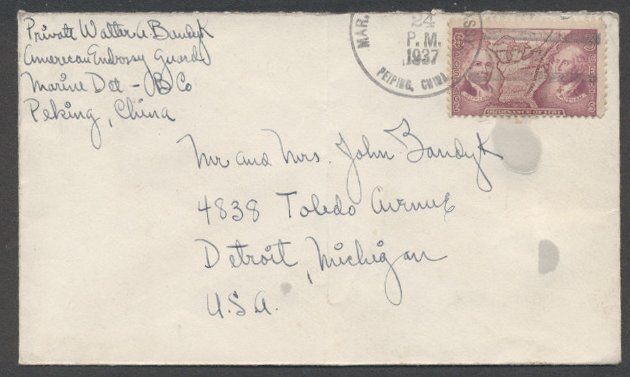 Private Walter A. Bandyk
American Embassy Guard
Marine Det - "B" Co
Peking, China
MAR. DET.
24
P. M.
1937
PEIPING, CHINA.
ORDINANCE OF 1787
Mr and Mrs. John Bandyk
4838 Toledo Avenue
Detroit, Michigan
U.S.A.